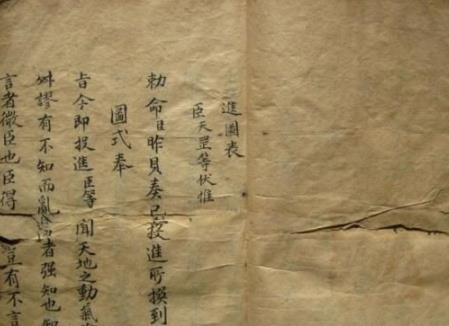 進圖表
臣天罡等伏惟
勅命日昨具奏已投進所撰到
圖式奉
旨令即投進臣等聞天地之動氣
舛謬有不知而亂言者強知也知
言者微臣也臣得豈有不言